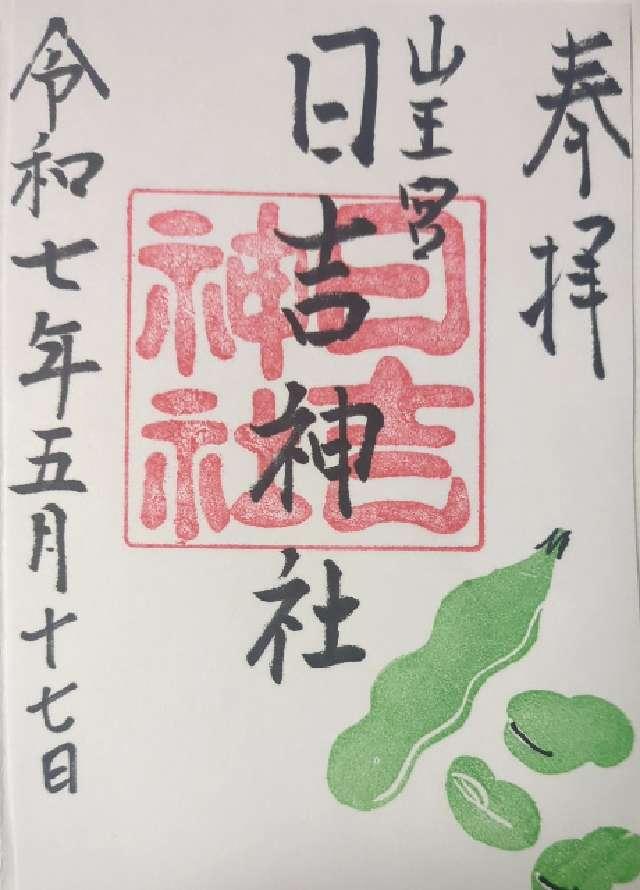 奉拝
山王宮
日吉神社
日吉
神社
令和七年五月十七日